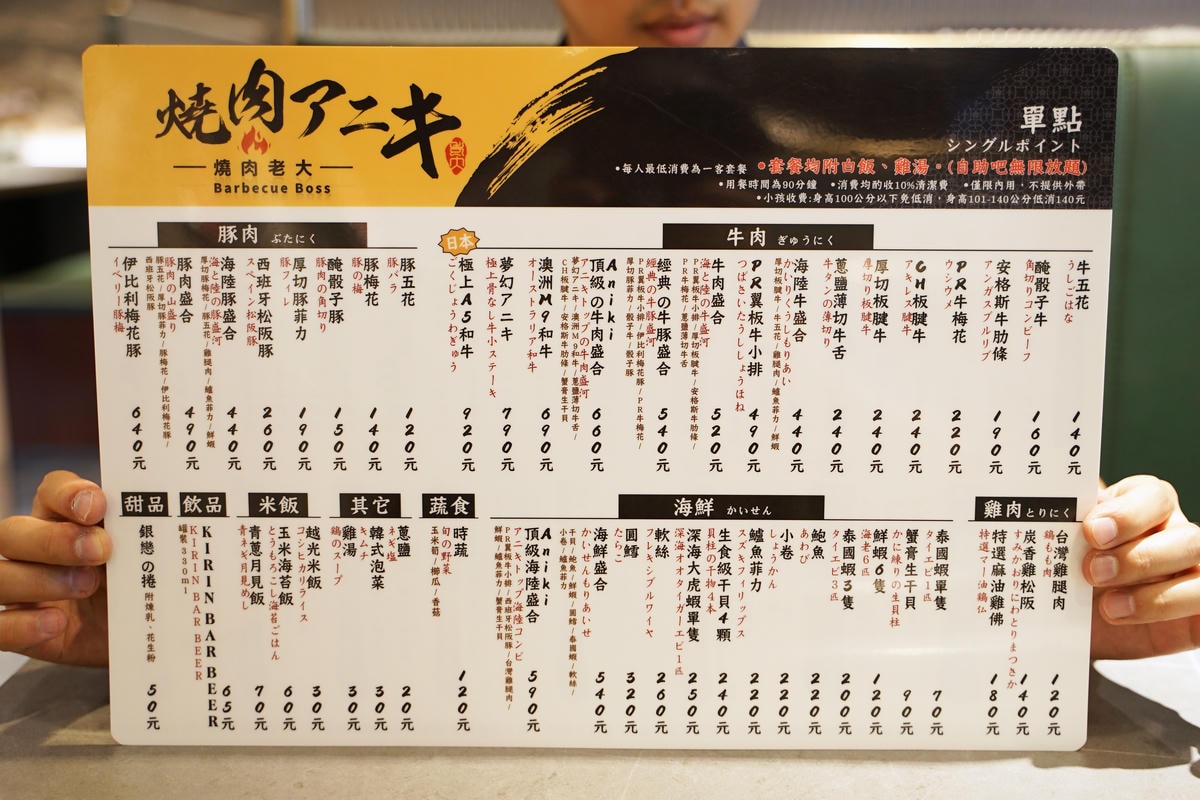 燒肉アニキ
燒肉老大
Barbecue Boss
單點
シングルポイント
•每人最低消費為一客套餐 •套餐均附白飯、雞湯•(自助吧無限放題)
•用餐時間為90分鐘 •消費均酌收10%清潔費 •僅限內用，不提供外帶
•小孩收費:身高100公分以下免低消，身高101-140公分低消140元
牛肉 ぎゅうにく
牛五花 140元
うしごはな
醃骰子牛 160元
角切りコンビーフ
安格斯牛肋條 190元
アンガスプルリブ
PR牛梅花 220元
ウシウメ
CH板腱牛 240元
アキレス腱牛
厚切板腱牛 240元
厚切り板腱牛
蔥鹽薄切牛舌 240元
牛タンの薄切り
海陸牛盛合 440元
かいりくうしもりあい
PR翼板牛小排 490元
つばさいたうししょうほね
牛肉盛合 520元
海と陸の牛盛河
PR翼板牛小排/厚切板腱牛/安格斯牛肋條/
PR牛梅花/蔥鹽薄切牛舌
經典の牛豚盛合 540元
經典の牛豚盛河
PR翼板牛小排/伊比利梅花豚/PR牛梅花/
厚切豚菲力/骰子牛/骰子豚
Aniki
頂級の牛肉盛合 660元
アニキトップの牛肉盛河
夢幻アニキ/澳洲M9和牛/蔥鹽薄切牛舌/
CH板腱牛/安格斯牛肋條/蟹膏生干貝
澳洲M9和牛 690元
オーストラリア和牛
夢幻アニキ 790元
極上骨なし牛小ステーキ
日本
極上A5和牛 920元
ごくじょうわぎゅう
豚肉 ぶたにく
豚五花 120元
豚バラ
豚梅花 140元
豚の梅
醃骰子豚 150元
豚肉の角切り
厚切豚菲力 190元
豚フィレ
西班牙松阪豚 260元
スペイン松阪豚
海陸豚盛合 440元
海と陸の豚盛河
厚切豚菲力/豚五花/雞腿肉/鱸魚菲力/鮮蝦
豚肉盛合 490元
豚肉の山盛り
豚五花/厚切豚菲力/豚梅花/伊比利梅花豚/
西班牙松阪豚
伊比利梅花豚 640元
イベリー豚梅
雞肉 とりにく
台灣雞腿肉 120元
鶏もも肉
炭香雞松阪 140元
すみかおりにわとりまつさか
特選麻油雞佛 180元
特選マー油鶏仏
海鮮 かいせん
泰國蝦單隻 70元
タイエビ1匹
蟹膏生干貝 90元
かに練りの生貝柱
鮮蝦6隻 120元
海老6匹
泰國蝦3隻 200元
タイエビ3匹
鮑魚 220元
あわび
小卷 220元
しょうかん
鱸魚菲力 220元
スズキフィリップス
生食級干貝4顆 240元
貝柱の干物4本
深海大虎蝦單隻 250元
深海オオタイガーエビ1匹
軟絲 260元
フレキシブルワイヤ
圓鱈 320元
たらこ
海鮮盛合 540元
かいせんもりあいせ
干貝/鮑魚/鮮蝦/圓鱈/泰國蝦/軟絲/
小卷/鱸魚菲力
Aniki
頂級海陸盛合 590元
アニキトップ海陸コンビ
PR翼板牛小排/西班牙松阪豚/台灣雞腿肉/
鮮蝦/鱸魚菲力/蟹膏生干貝
蔬食
時蔬 120元
旬の野菜
玉米筍/櫛瓜/香菇
其它
蔥鹽 20元
ネギ塩
韓式泡菜 30元
キムチ
雞湯 30元
鶏のスープ
米飯
越光米飯 30元
コシヒカリライス
玉米海苔飯 60元
とうもろこし海苔ごはん
青蔥月見飯 70元
青ネギ月見めし
飲品
KIRIN BAR BEER 65元
KIRIN BAR BEER
罐裝330ml
甜品
銀戀の捲 附煉乳、花生粉 50元